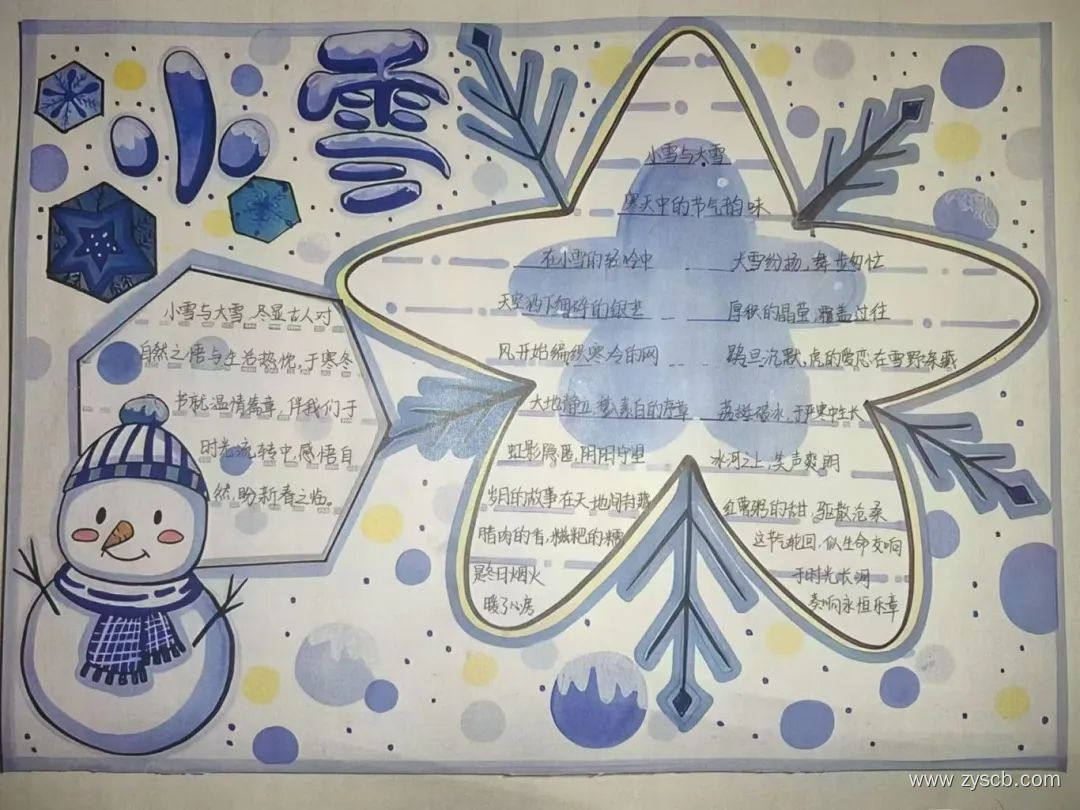 小雪
小雪与大雪
寒天中的节气韵味
在小雪的轻吟中
天空洒下细碎的银芒
风开始编织寒冷的网
大地静立 素白的序章
虹影隐匿,阴阳守望
岁月的故事在天地间封藏
腊肉的香,糍粑的糯
是冬日烟火
暖了心房
大雪纷扬,舞步匆忙
厚积的晶莹,覆盖过往
鹖旦沉默,虎的爱恋在雪野深藏
荔挺破冰,于严寒中生长
冰河之上,笑声爽朗
红薯粥的甜,驱散沧桑
这节气轮回,似生命交响
于时光长河
奏响永恒乐章
小雪与大雪,尽显古人对
自然之悟与生活热忱,于寒冬
书就温情篇章,伴我们于
时光流转中,感悟自
然,盼新春之临。
www.zyscb.com